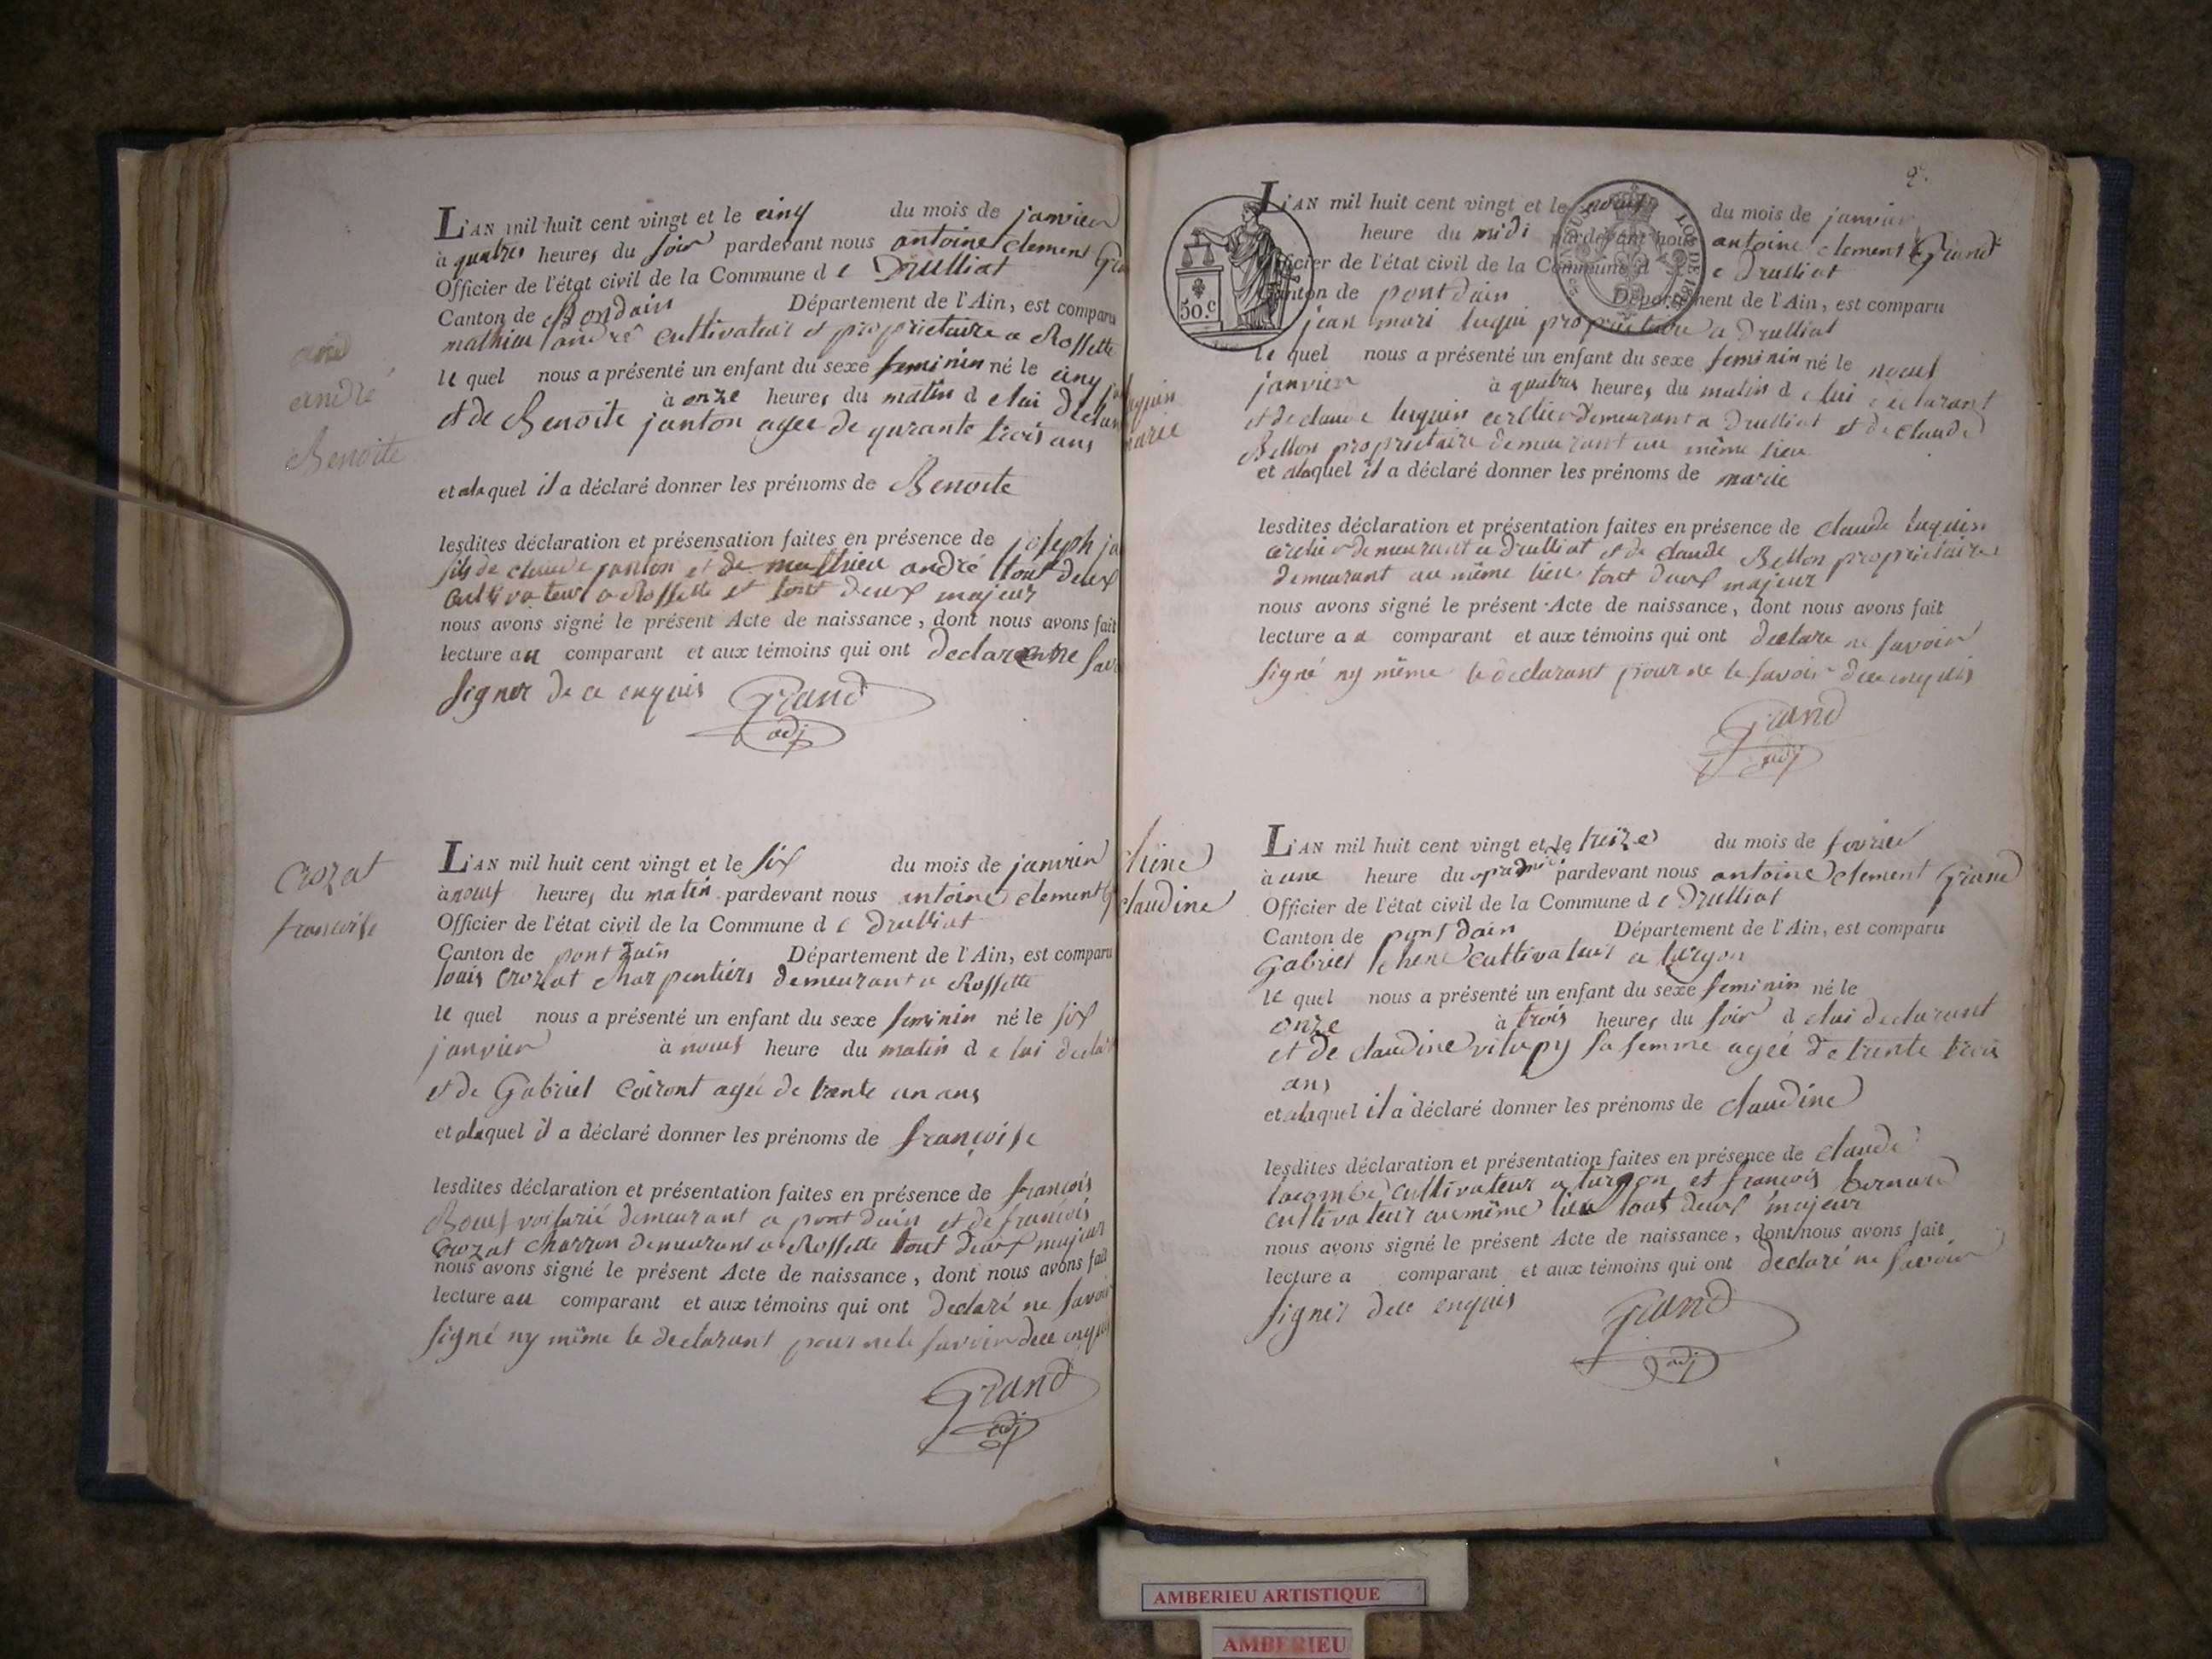 L'AN mil huit cent vingt et le cinq du mois de janvier
à quatres heures du soir pardevant nous antoine clement
Officier de l'état civil de la Commune d e Drulliat
Canton de Pondain Département de l'Ain, est comparu
mathieu andré cultivateur et proprietaire a Rossette
andré
Benoite
le quel nous a présenté un enfant du sexe feminin né le cinq
à onze heures du matin d e lui
et de Benoite janton agee de quarante trois ans
et alaquel il a déclaré donner les prénoms de Benoite
lesdites déclaration et présensation faites en présence de joseph
fils de claude janton et de mathieu andré tout deux
cultivateur a Rossette et tout deux majeur
nous avons signé le présent Acte de naissance, dont nous avons fait
lecture au comparant et aux témoins qui ont declare ne
signer de ce enquis Grand
adj
Crozat
francoise
L'AN mil huit cent vingt et le six du mois de janvier
à neuf heures du matin pardevant nous antoine clement
Officier de l'état civil de la Commune d e Drulliat
Canton de pont dain Département de l'Ain, est comparu
louis crozat charpentiers demeurant a Rossette
le quel nous a présenté un enfant du sexe feminin né le six
janvier à neuf heure du matin d e lui
et de Gabriel Coiront agée de trente un ans
et alaquel il a déclaré donner les prénoms de françoise
lesdites déclaration et présentation faites en présence de francois
Boeuf voiturié demeurant a pont dain et de francois
Crozat charron demeurant a Rossette tout deux majeur
nous avons signé le présent Acte de naissance, dont nous avons fait
lecture au comparant et aux témoins qui ont declaré ne savoir
signé ny même le declarant pour ne le savoir dece enquis
Grand
adj
2e.
50.c
LOI DE
L'AN mil huit cent vingt et le neuf du mois de janvier
heure du midi pardevant nous antoine clement Grand
Officier de l'état civil de la Commune d e Drulliat
Canton de pont dain Département de l'Ain, est comparu
jean mari luqui proprietaire a Drulliat
le quel nous a présenté un enfant du sexe feminin né le neuf
janvier à quatres heures du matin d e lui declarant
et de claude luquin cerclier demeurant a Drulliat et de claude
Bellon proprietaire demeurant au même lieu
et alaquel il a déclaré donner les prénoms de marie
marie
lesdites déclaration et présentation faites en présence de claude luquin
cerclier demeurant a Drulliat et de claude Bellon proprietaire
demeurant au même lieu tout deux majeur
nous avons signé le présent Acte de naissance, dont nous avons fait
lecture a u comparant et aux témoins qui ont declare ne savoir
signé ny même le declarant pour ne le savoir dece enquis
Grand
adj
claudine
L'AN mil huit cent vingt et le treize du mois de fevrier
à une heure du apra midi pardevant nous antoine clement Grand
Officier de l'état civil de la Commune d e Drulliat
Canton de pont dain Département de l'Ain, est comparu
Gabriel cultivateur a turgon
le quel nous a présenté un enfant du sexe feminin né le
onze à trois heures du soir d e lui declarant
et de claudine vilupy sa femme agee de trente trois
ans
et alaquel il a déclaré donner les prénoms de claudine
lesdites déclaration et présentation faites en présence de claude
lacombe cultivateur a turgon et francois bernard
cultivateur au même lieu tout deux majeur
nous avons signé le présent Acte de naissance, dont nous avons fait
lecture a comparant et aux témoins qui ont declaré ne savoir
signer dece enquis Grand
adj
AMBERIEU ARTISTIQUE
AMBERIEU